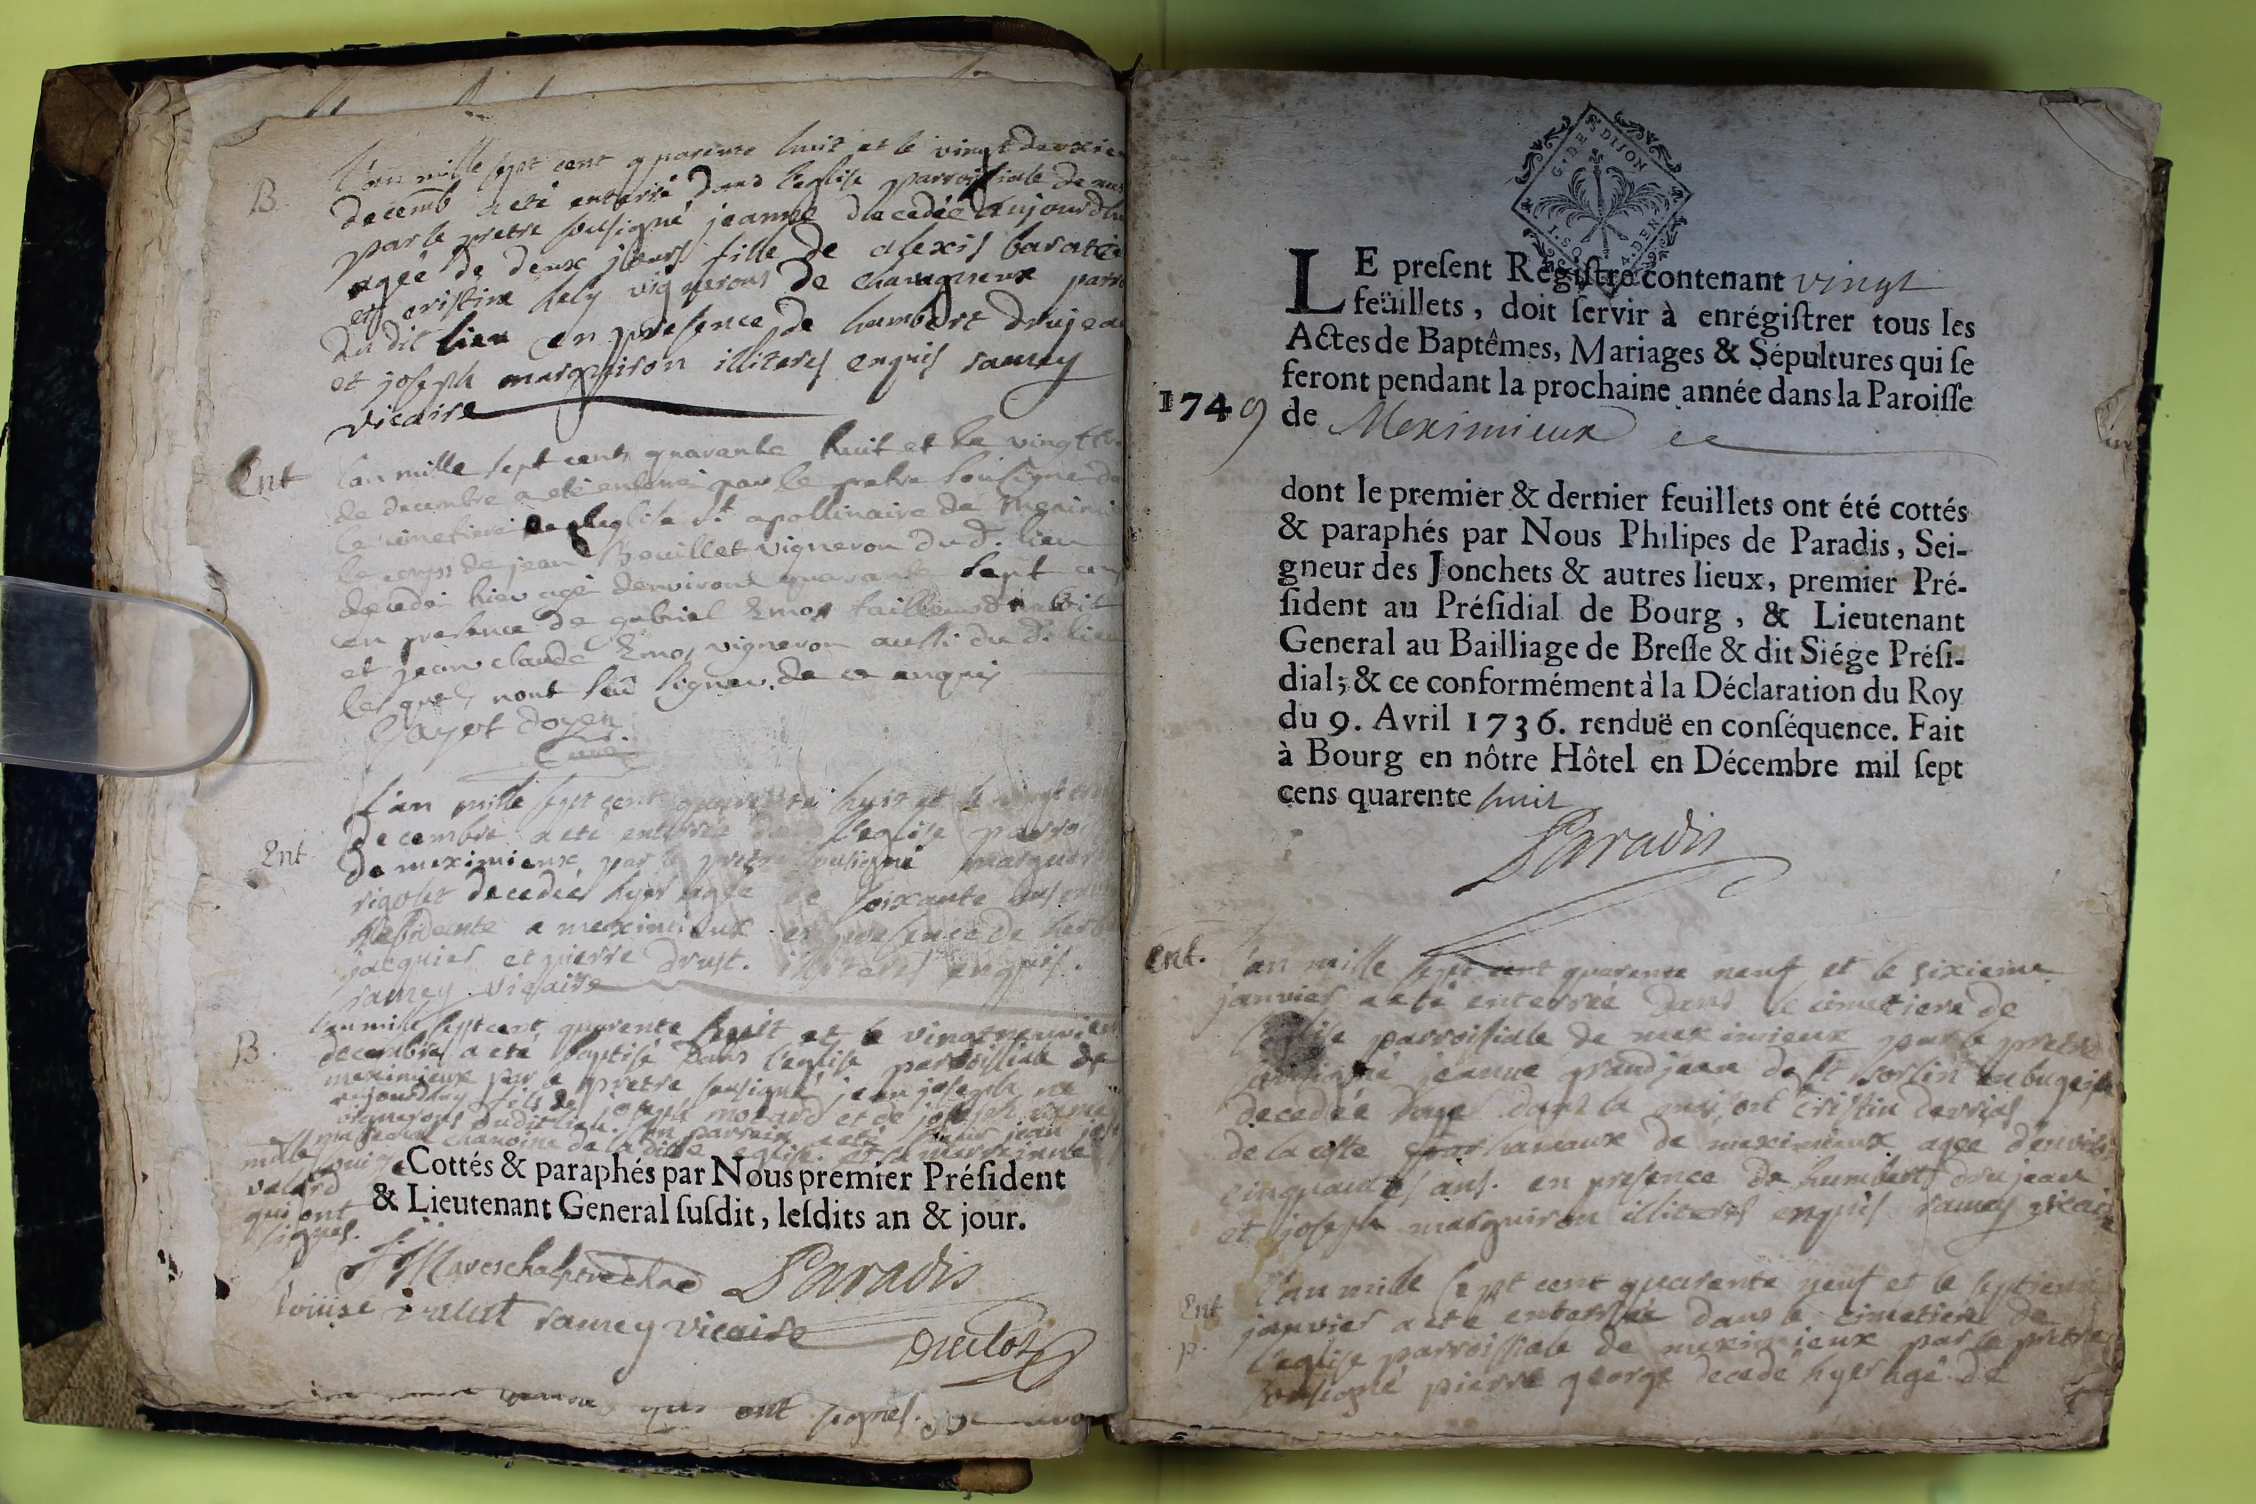 B.
L'an mille sept cent quarente huit et le vingt deuxiem
decemb a eté enterré dans l'eglise parroissiale de
par le pretre sousigné jeanne decedée aujourdhu
agée de deux jours fille de alexis baratie
et cristine hely vignerons de charagneux parr
du dit lieu en presence de humbert drujea
et joseph marguiron illiteres enquis ramey
vicaire
Ent
l'an mille sept cent quarante huit et le vingt
de decembre a eté enterré par le pretre sousigné
le cimetiere de l'eglise St apollinaire de meximi
le corps de jean Bouillet vigneron du d. lieu
decedé hier agé denviron quarante sept ans
en presence de gabriel
et jean claude vigneron aussi du d. lieu
lesquels nont sceu signer de ce enquis
Gayot doyen
curé
Ent
L'an mille sept cent quarente huit et le vingt
decembre a eté enterrée dans l'eglise parroi
de meximieux par le pretre sousigné marguer
rigolet decedée hyer agée de soixante
residente a meximieux en presence de
jacquier et pierre drust. illiteres enquis.
ramey vicaire
B.
L'an mille sept cent quarente huit et le vingtneuvie
decembre a eté baptisé dans l'eglise parroissiale de
meximieux par le pretre sousigné jean joseph né
aujourdhuy fils de joseph morard et de
vignerons dudit lieu. son parrain a eté jean
chanoine de la ditte eglise. et la marrainne
mlle
qui ont
signés.
Cottés & paraphés par Nous premier Président
& Lieutenant General susdit, lesdits an & jour.
Paradis
Louise ramey vicaire
Duclos
ont signés.
G. DE DIJON
LE present Registre contenant vingt
feüillets, doit servir à enrégistrer tous les
Actes de Baptêmes, Mariages & Sépultures qui se
feront pendant la prochaine année dans la Paroisse
1749
de Meximieux
dont le premier & dernier feuillets ont été cottés
& paraphés par Nous Philipes de Paradis, Sei-
gneur des Jonchets & autres lieux, premier Pré-
sident au Présidial de Bourg, & Lieutenant
General au Bailliage de Bresse & dit Siége Prési-
dial; & ce conformément à la Déclaration du Roy
du 9. Avril 1736. renduë en conséquence. Fait
à Bourg en nôtre Hôtel en Décembre mil sept
cens quarente huit
Paradis
Ent.
L'an mille sept cent quarente neuf et le sixieme
janvier a eté enterrée dans le cimetiere de
l'eglise parroissiale de meximieux par le pretre
sousigné jeanne grandjean de St Sorlin en bugei
decedée hyer dans la maison cristin
de la coste hameaux de meximieux agée d'environ
cinquantes ans. en presence de humbert drujean
et joseph marguiron illiteres enquis ramey vicaire
Ent
p.
L'an mille sept cent quarente neuf et le septiem
janvier a eté enterrée dans le cimetiere de
l'eglise parroissiale de meximieux par le pretre
sousigné pierre george decedé hyer agé de